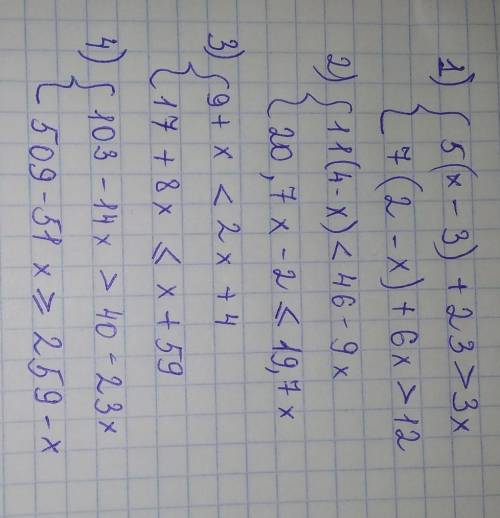 1) { 5(x - 3) + 23 > 3x
7(2 - x) + 6x > 12
2) { 11(4 - x) < 46 - 9x
20,7x - 2 ≤ 19,7x
3) { 9 + x < 2x + 4
17 + 8x ≤ x + 59
4) { 103 - 14x > 40 - 23x
509 - 51x ≥ 259 - x